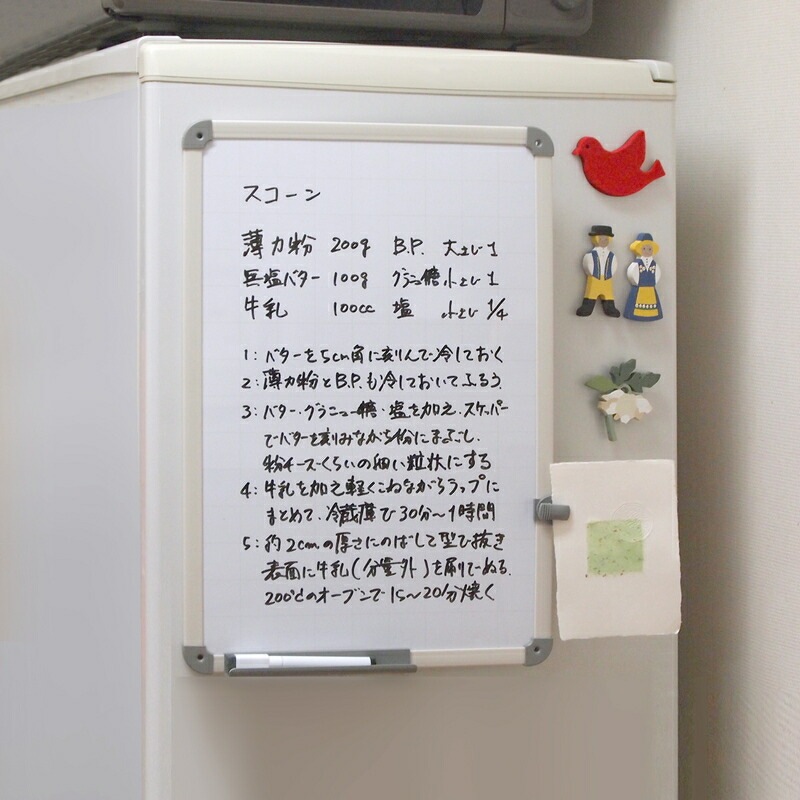 スコーン
薄力粉 200g B.P. 大さじ1
無塩バター 100g グラニュー糖 小さじ1
牛乳 100cc 塩 小さじ1/4
1: バターを5cm角に刻んで冷しておく
2: 薄力粉とB.P.も冷しておいてふるう.
3: バター・グラニュー糖・塩を加え.スケッパー
でバターを刻みながら粉にまぶし.
粉チーズくらいの細い粒状にする
4: 牛乳を加え軽くこねながらラップに
まとめて、冷蔵庫で30分〜1時間
5: 約2cmの厚さにのばして型で抜き
表面に牛乳(分量外)を刷でぬる.
200℃のオーブンで15〜20分焼く